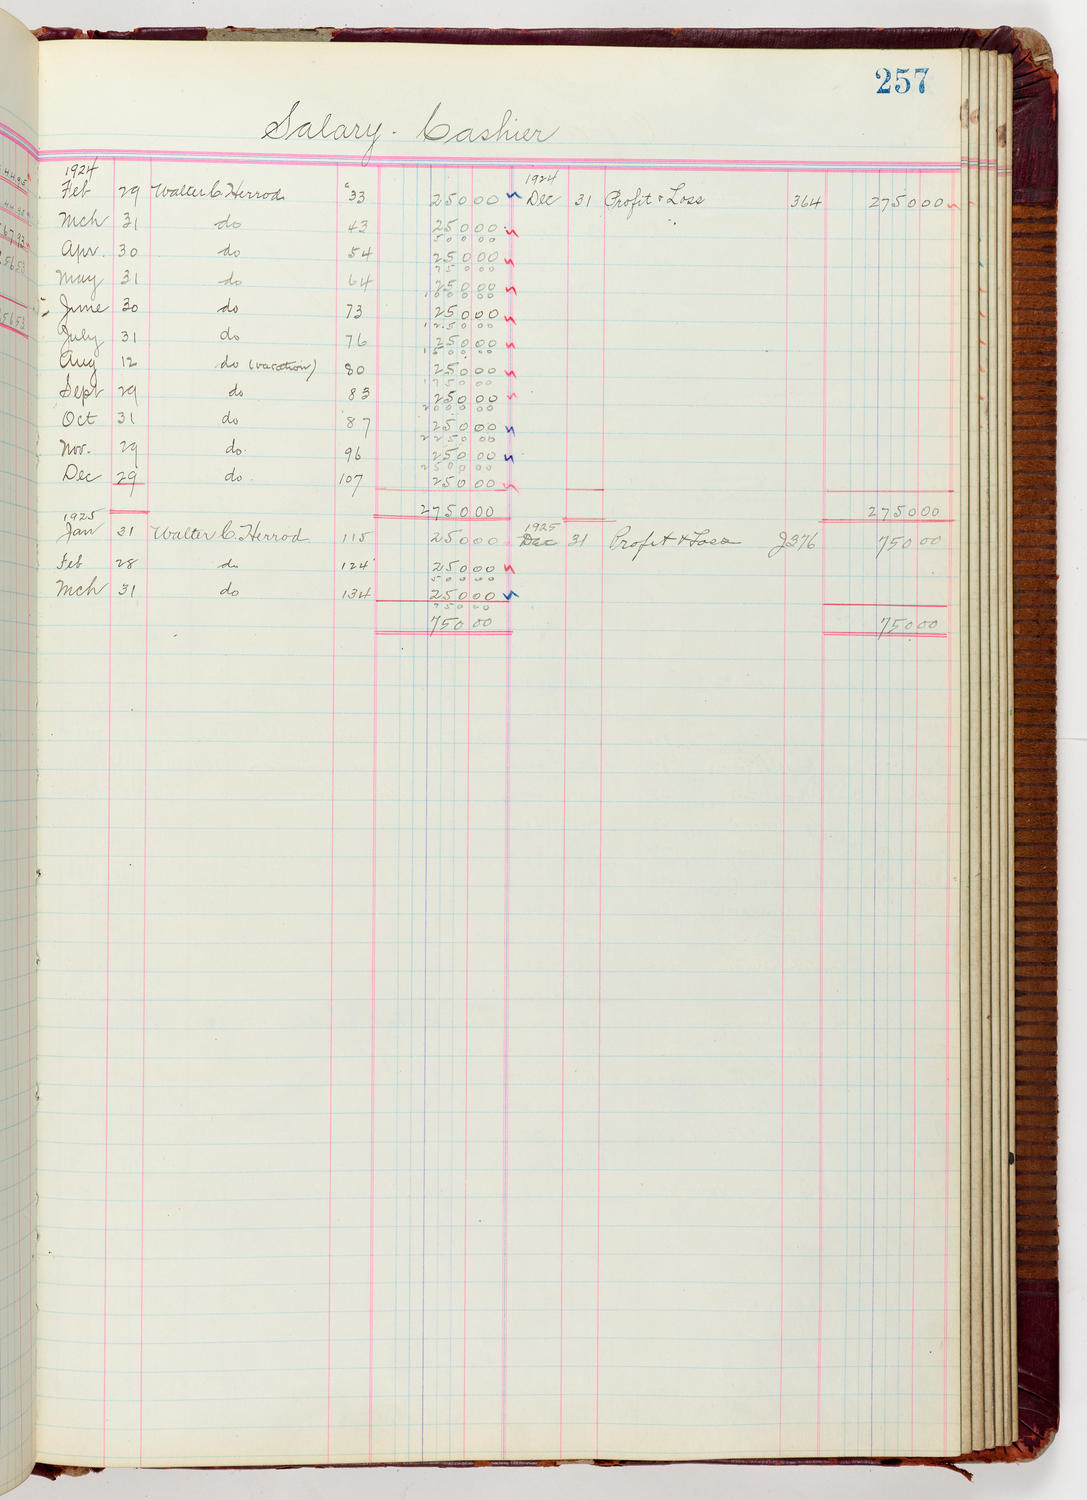 257
Salary - Cashier
1924 1924
Feb 29 Walter C Herrod "33 250 00 Dec 31 Profit & Loss 364 2750 00
Mch 31 do 43 250 00
500 00
Apr. 30 do 54 250 00
750 00
May 31 do 64 250 00
1000 00
June 30 do 73 250 00
1250 00
July 31 do 76 250 00
1500 00
Aug 12 do (vacation) 80 250 00
1750 00
Sept 29 do 83 250 00
2000 00
Oct 31 do 87 250 00
2250 00
Nov. 29 do 96 250 00
2500 00
Dec 29 do 107 250 00
2750 00 2750 00
1925 1925
Jan 31 Walter C. Herrod 115 250 00 Dec 31 Profit & Loss J376 750 00
Feb 28 do 124 250 00
500 00
Mch 31 do 134 250 00
750 00
750 00 750 00